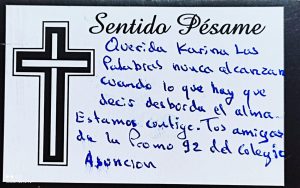 Sentido Pésame
Querida Karina Las
Palabras nunca alcanzan
cuando lo que hay que
decir desborda el alma.
Estamos contigo. Tus amigas
de la Promo 92 del colegio
Asuncion